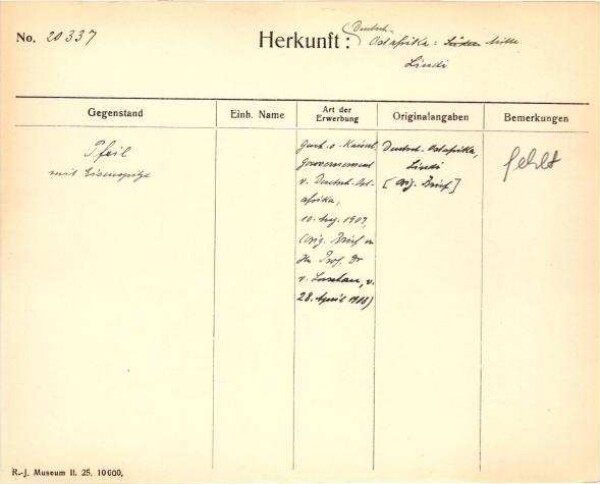 No. 20337
Herkunft: Deutsch-
Ostafrika: Süden Mitte
Lindi
Gegenstand
Einh. Name
Art der
Erwerbung
Originalangaben
Bemerkungen
Pfeil
mit Eisenspitze
Gesch. v. Kaiserl.
Gouvernement
v. Deutsch-Ost-
afrika,
1907,
(Orig. Brief an
Hn Prof. Dr
v. Luschan, v.
28. April 1908)
Deutsch-Ostafrika,
Lindi
[Orig. Brief]
fehlt
R.-J. Museum II. 25. 10000.